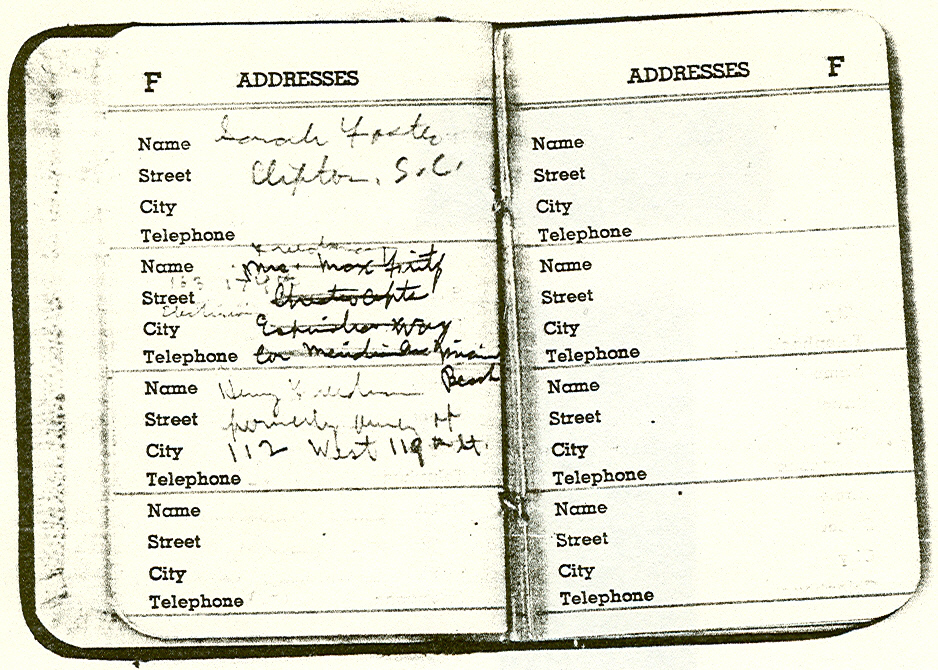 F ADDRESSES
Name Sarah Foster
Street Clifton, S.C.
City
Telephone
Name Mrs. Max
Street
City Way
Telephone Cor Meridian Ave Miami
Beach
Name Henry Freedman
Street formerly owner of
City 112 West 119th St.
Telephone
Name
Street
City
Telephone
ADDRESSES F
Name
Street
City
Telephone
Name
Street
City
Telephone
Name
Street
City
Telephone
Name
Street
City
Telephone